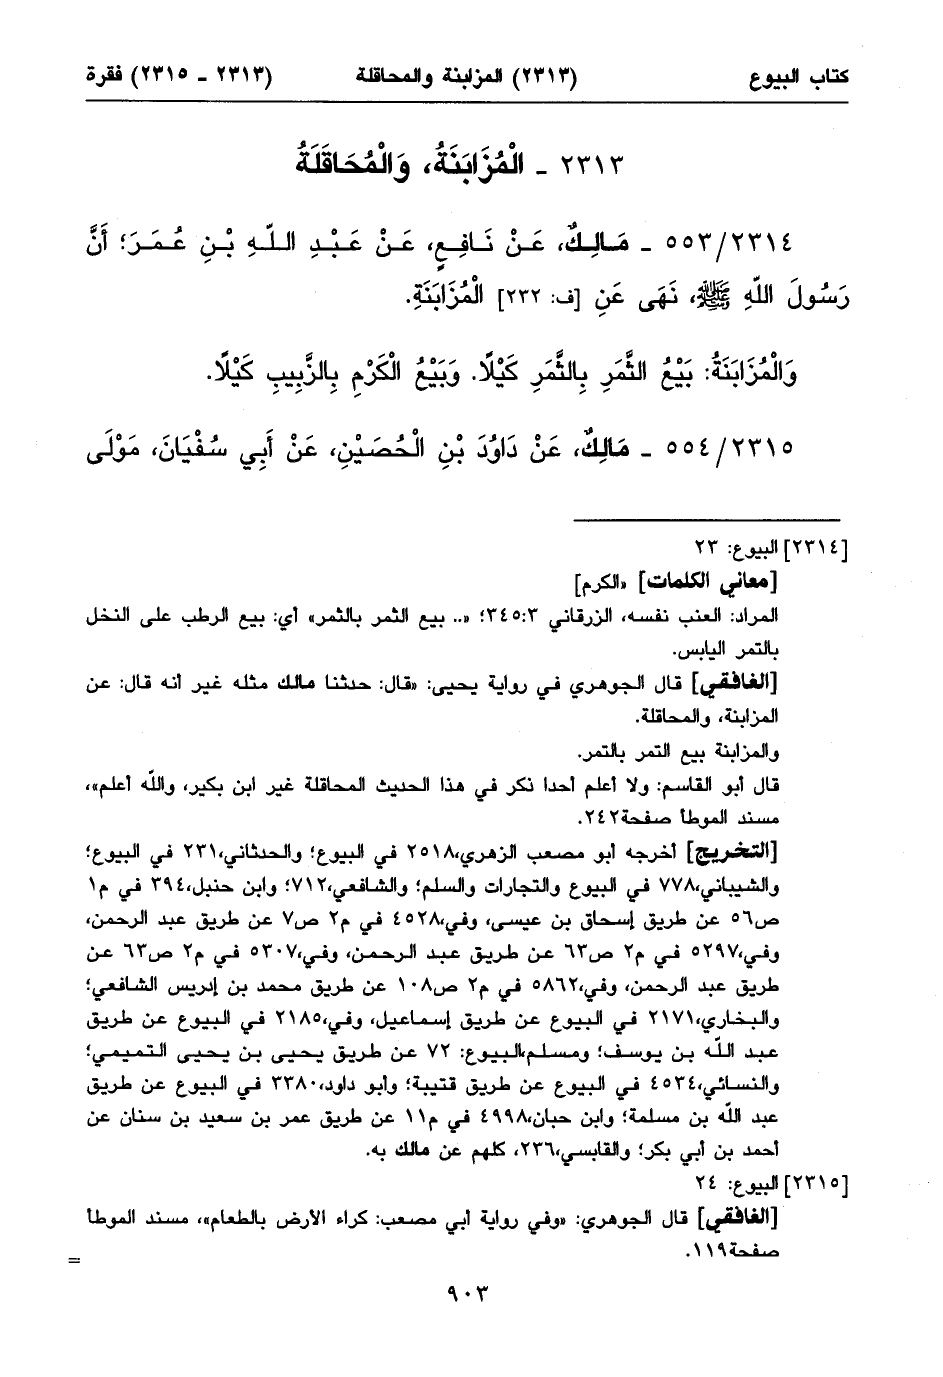 كتاب البيوع (٢٣١٣) المزابنة والمحاقلة (٢٣١٣ - ٢٣١٥) فقرة
٢٣١٣ - الْمُزَابَنَةُ، وَالْمُحَاقَلَةُ
٥٥٣/٢٣١٤ - مَالِكٌ، عَنْ نَافِعٍ، عَنْ عَبْدِ اللّهِ بْنِ عُمَرَ؛ أَنَّ
رَسُولَ اللّهِ ﷺ، نَهَى عَنِ [ف: ٢٣٢] الْمُزَابَنَةِ.
وَالْمُزَابَنَةُ: بَيْعُ الثَّمَرِ بِالثَّمَرِ كَيْلًا. وَبَيْعُ الْكَرْمِ بِالزَّبِيبِ كَيْلًا.
٥٥٤/٢٣١٥ - مَالِكٌ، عَنْ دَاوُدَ بْنِ الْحُصَيْنِ، عَنْ أَبِي سُفْيَانَ، مَوْلَى
[٢٣١٤] البيوع: ٢٣
[معاني الكلمات] «الكرم]
المراد: العنب نفسه، الزرقاني ٣٤٥:٣؛ «.. بيع الثمر بالثمر» أي: بيع الرطب على النخل
بالتمر اليابس.
[الغافقي] قال الجوهري في رواية يحيى: «قال: حدثنا مالك مثله غير أنه قال: عن
المزابنة، والمحاقلة.
والمزابنة بيع التمر بالتمر.
قال أبو القاسم: ولا أعلم أحدا ذكر في هذا الحديث المحاقلة غير ابن بكير، واللّه أعلم»،
مسند الموطأ صفحة٢٤٢.
[التخريج] أخرجه أبو مصعب الزهري،٢٥١٨ في البيوع؛ والحدثاني،٢٣١ في البيوع؛
والشيباني،٧٧٨ في البيوع والتجارات والسلم؛ والشافعي،٧١٢؛ وابن حنبل،٣٩٤ في م١
ص٥٦ عن طريق إسحاق بن عيسى، وفي،٤٥٢٨ في م٢ ص٧ عن طريق عبد الرحمن،
وفي،٥٢٩٧ في م٢ ص٦٣ عن طريق عبد الرحمن، وفي،٥٣٠٧ في م٢ ص٦٣ عن
طريق عبد الرحمن، وفي،٥٨٦٢ في م٢ ص١٠٨ عن طريق محمد بن إدريس الشافعي؛
والبخاري،٢١٧١ في البيوع عن طريق إسماعيل، وفي،٢١٨٥ في البيوع عن طريق
عبد اللّه بن يوسف؛ ومسلم،البيوع: ٧٢ عن طريق يحيى بن يحيى التميمي؛
والنسائي،٤٥٣٤ في البيوع عن طريق قتيبة؛ وأبو داود،٣٣٨٠ في البيوع عن طريق
عبد اللّه بن مسلمة؛ وابن حبان،٤٩٩٨ في م١١ عن طريق عمر بن سعيد بن سنان عن
أحمد بن أبي بكر؛ والقابسي،٢٣٦، كلهم عن مالك به.
[٢٣١٥] البيوع: ٢٤
[الغافقي] قال الجوهري: «وفي رواية أبي مصعب: كراء الأرض بالطعام»، مسند الموطأ
صفحة١١٩.
=
٩٠٣